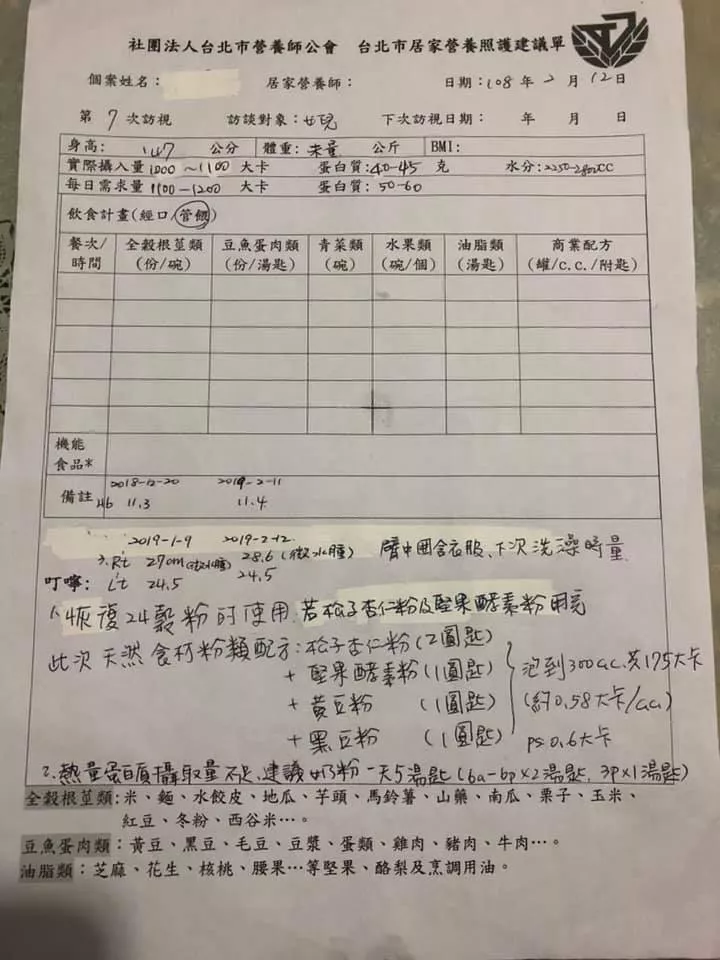 社團法人台北市營養師公會 台北市居家營養照護建議單
個案姓名： 居家營養師： 日期：108 年 2 月 12 日
第 7 次訪視 訪談對象：女兒 下次訪視日期： 年 月 日
身高： 147 公分 體重：未量 公斤 BMI：
實際攝入量 1000～1100 大卡 蛋白質：40-45 克 水分：2250-2800cc
每日需求量 1100-1200 大卡 蛋白質：50-60
飲食計畫(經口/管餵)
餐次/時間 全穀根莖類(份/碗) 豆魚蛋肉類(份/湯匙) 青菜類(碗) 水果類(碗/個) 油脂類(湯匙) 商業配方(罐/c.c./附匙)
機能食品*
2018-12-20 2019-2-11
備註 Hb 11.3 11.4
2019-1-9 2019-2-12
3. Rt 27cm(微水腫) 28.6(微水腫) 臂中圍含衣服、下次洗澡時量
叮嚀： Lt 24.5 24.5
1、恢復24穀粉的使用.若松子杏仁粉及堅果酵素粉用完
此次天然食材粉類配方：松子杏仁粉(2圓匙)
+堅果酵素粉(1圓匙) 泡到300cc.共175大卡
+黃豆粉 (1圓匙) (約0.58大卡/cc)
+黑豆粉 (1圓匙) ps 0.6大卡
2、熱量蛋白質攝取量不足、建議奶粉一天5湯匙(6a-6p×2湯匙, 3p×1湯匙)
全穀根莖類：米、麵、水餃皮、地瓜、芋頭、馬鈴薯、山藥、南瓜、栗子、玉米、
紅豆、冬粉、西谷米…。
豆魚蛋肉類：黃豆、黑豆、毛豆、豆漿、蛋類、雞肉、豬肉、牛肉…。
油脂類：芝麻、花生、核桃、腰果…等堅果、酪梨及烹調用油。